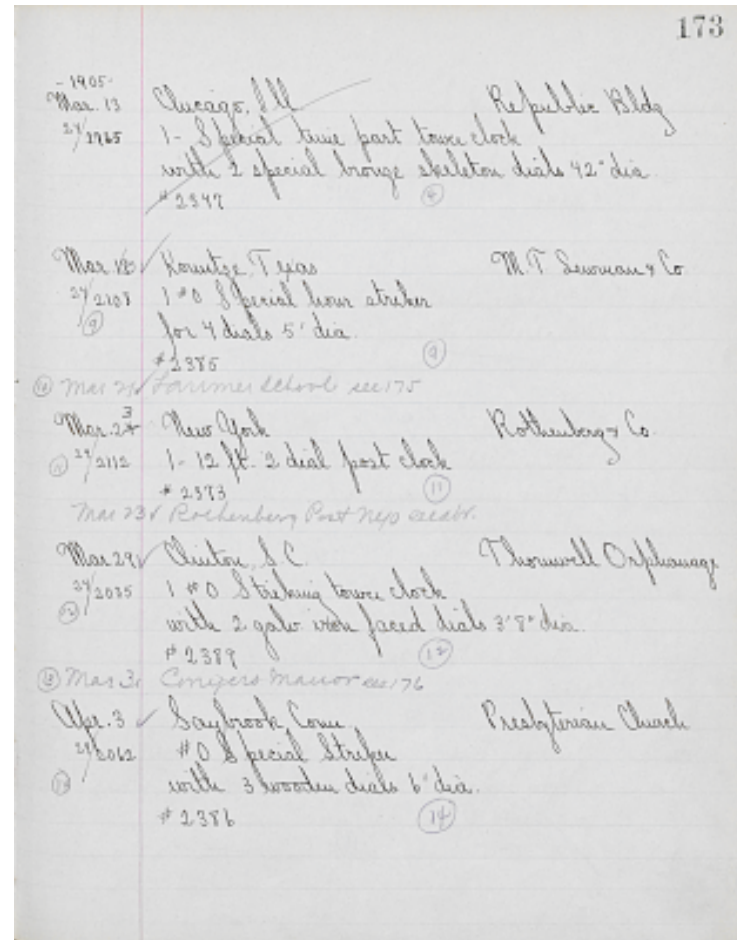 173
- 1905 -
Mar. 13 Chicago, Ill Republic Bldg
24/2965 1 - Special time part tower clock
with 2 special bronze skeleton dials 42" dia.
# 2347
Mar. Kountze, Texas M.T. & Co
24/2108 1 #0 Special hour striker
for 4 dials 5' dia.
9 # 2385 9
10 Mar 21 ✓ Larimer School see 175
Mar. 23 New York Rothenberg & Co.
24/2112 1 - 12 ft. 2 dial post clock
# 2373 11
Mar 23 ✓ Rothenberg Post
Mar 29 ✓ Clinton, S.C. Thornwell Orphanage
24/2035 1 #0 Striking tower clock
12 with 2 galv. iron faced dials 3'8" dia.
# 2389 12
13 Mar 31 Conyers Manor see 176
Apr. 3 ✓ Saybrook, Conn. Presbyterian Church
#0 Special Striker
with 3 wooden dials 6' dia.
# 2386 14